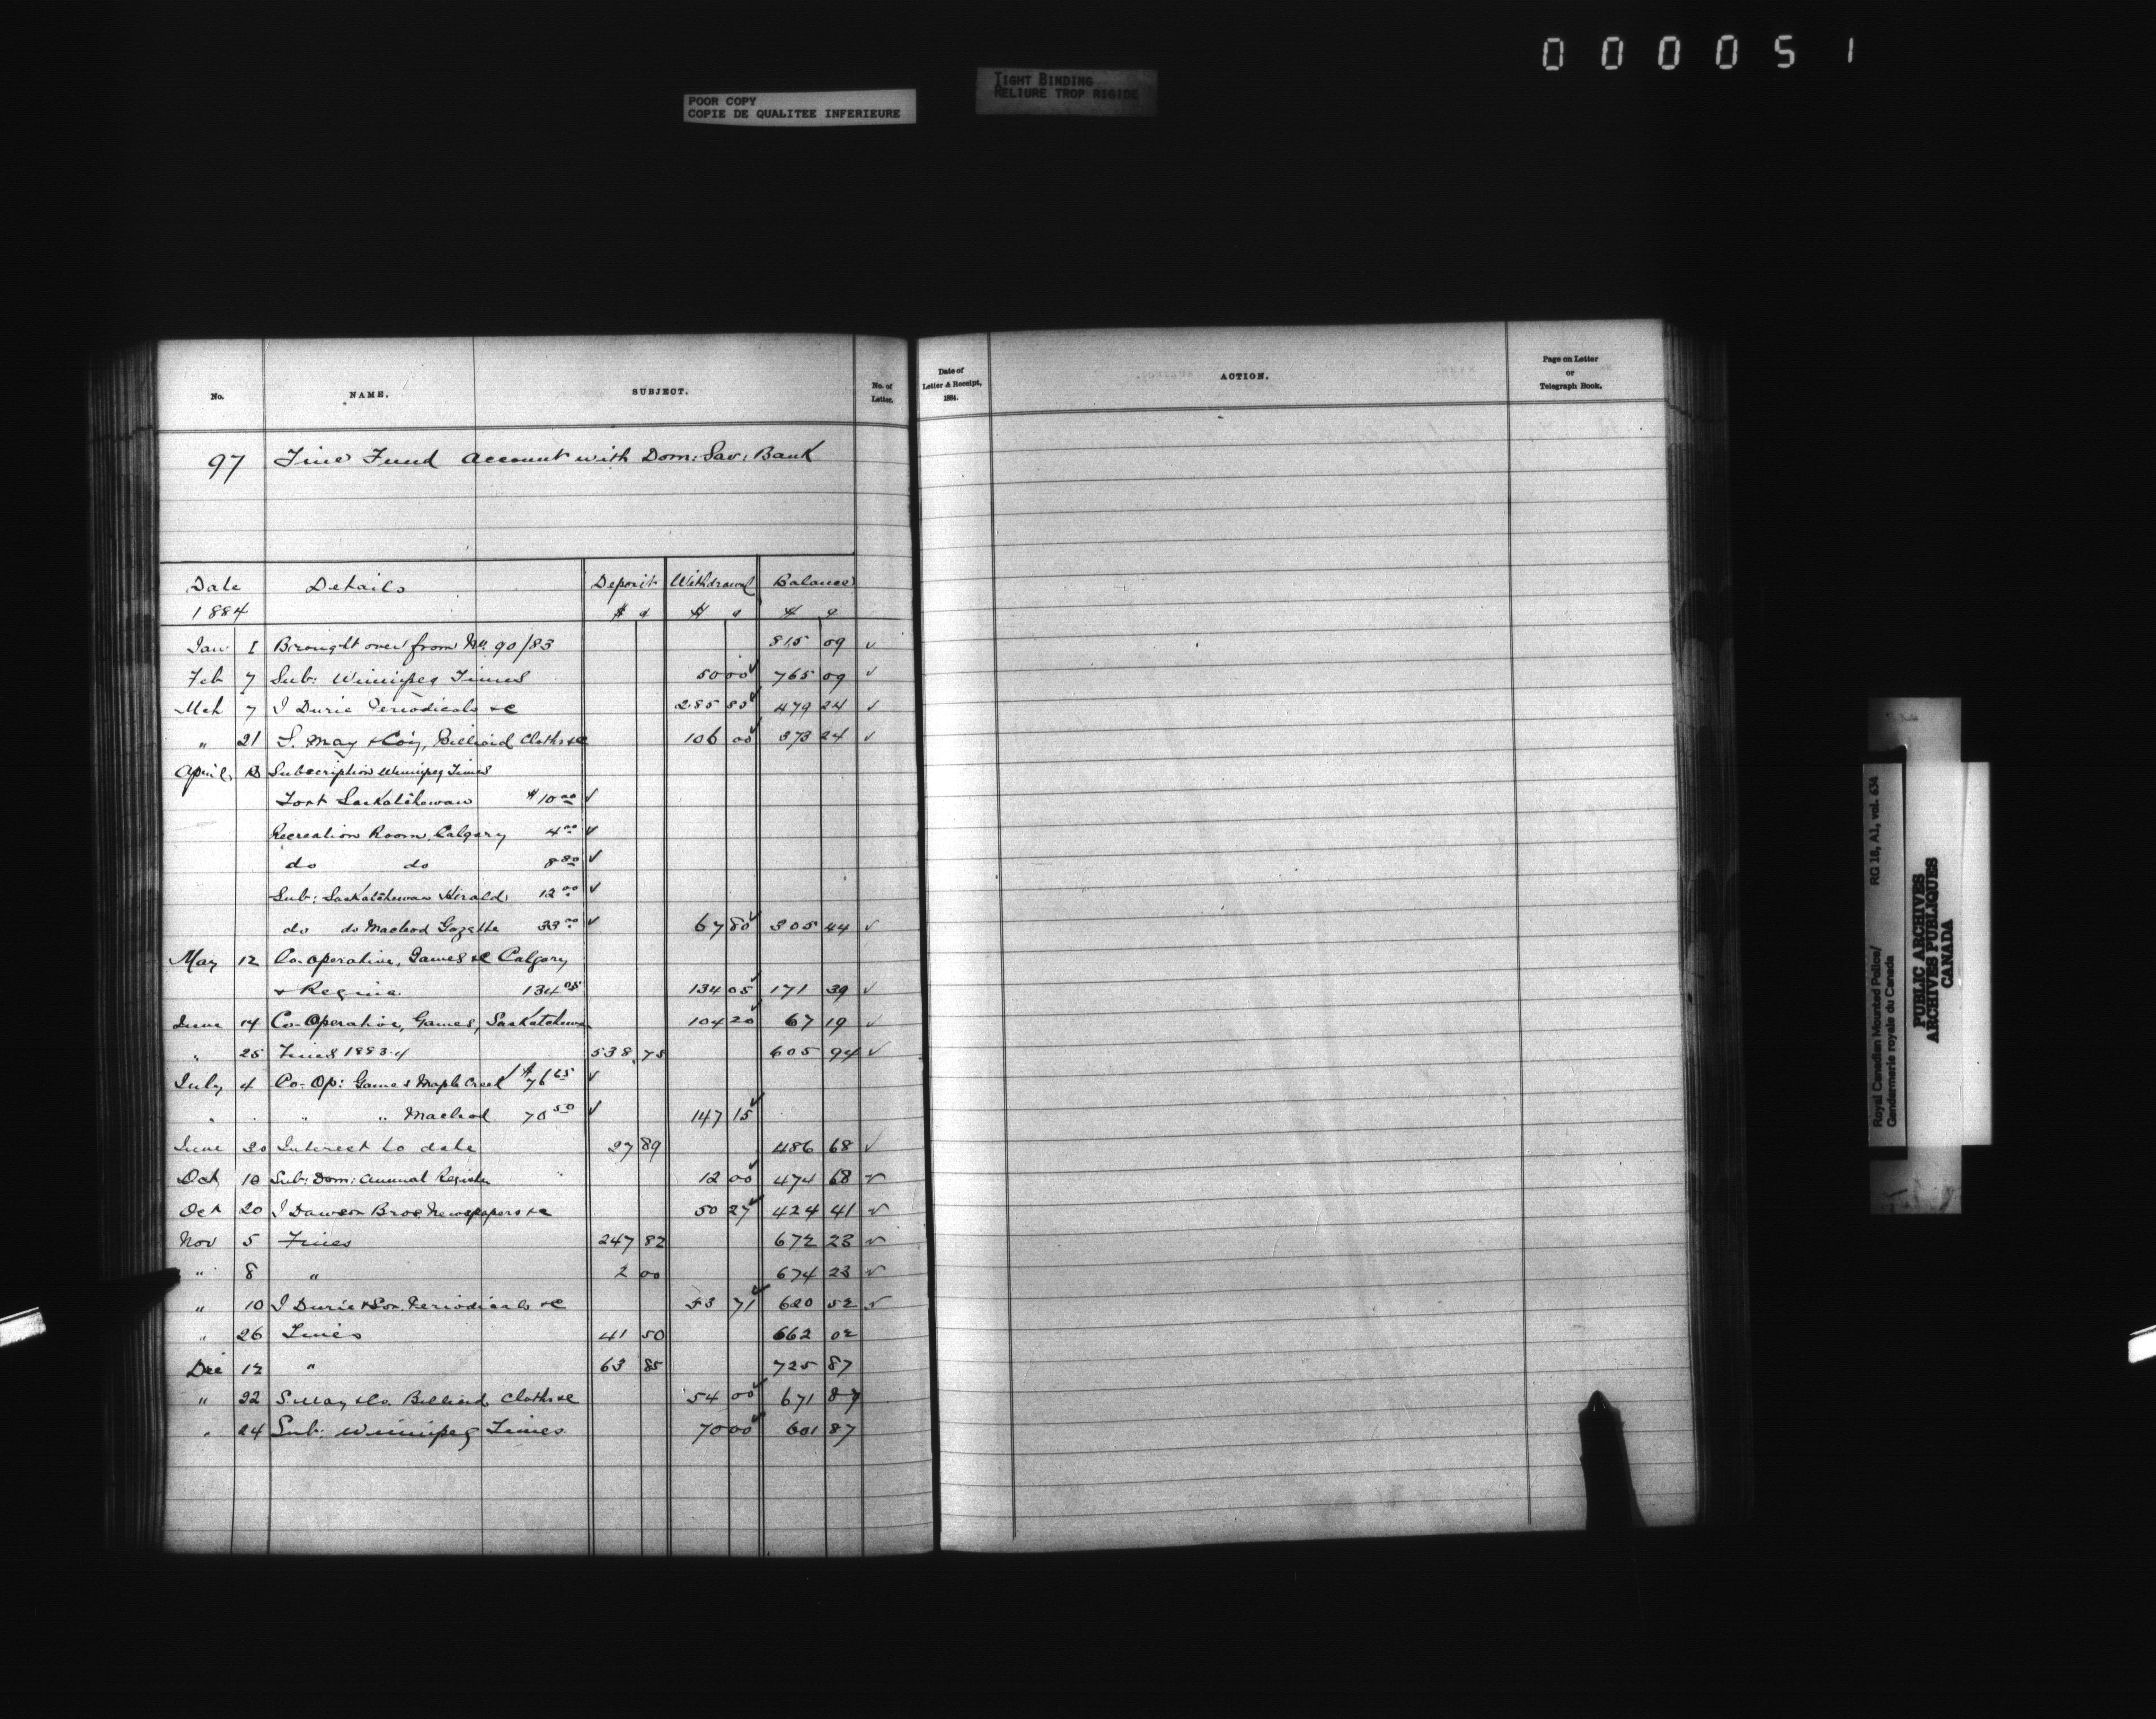 0 0 0 0 5 1
TIGHT BINDING
RELIURE TROP RIGIDE
POOR COPY
COPIE DE QUALITEE INFERIEURE
No. NAME. SUBJECT. No. of Letter.
97 Fine Fund Account with Dom: Sav: Bank
Date Details Deposit Withdrawal Balance
1884 $ c $ c $ c
Jan 1 Brought over from No. 90/83 815 09 ✓
Feb 7 Sub: Winnipeg Times 50 00 ✓ 765 09 ✓
Mch 7 J Durie Periodicals &c 285 85 ✓ 479 24 ✓
" 21 S. May & Coy, Billiard Cloths &c 106 00 ✓ 373 24 ✓
April Subscription Winnipeg Times
Fort Saskatchewan $10 00 ✓
Recreation Room, Calgary 4 00 ✓
do do 8 80 ✓
Sub: Saskatchewan Herald 12 00 ✓
do do Macleod Gazette 33 00 ✓ 67 80 ✓ 305 44 ✓
May 12 Co-operative, Games &c Calgary
& Regina 134 05 134 05 ✓ 171 39 ✓
June 14 Co-Operative, Games, Saskatchewan 104 20 ✓ 67 19 ✓
" 25 Fines 1883-4 538 75 605 94 ✓
July 4 Co-Op: Games Maple Creek $76 65 ✓
" " " " Macleod 70 50 ✓ 147 15 ✓
June 30 Interest to date 27 89 486 68 ✓
Oct 10 Sub: Dom: Annual Register 12 00 ✓ 474 68 ✓
Oct 20 J Dawson Bros Newspapers &c 50 27 ✓ 424 41 ✓
Nov 5 Fines 247 82 672 23 ✓
" 8 " 2 00 674 23 ✓
" 10 J Durie & Son Periodicals &c 53 71 ✓ 620 52 ✓
" 26 Fines 41 50 662 02
Dec 12 " 63 85 725 87
" 22 S. May & Co. Billiard Cloths &c 54 00 ✓ 671 87
" 24 Sub: Winnipeg Times 70 00 ✓ 601 87
Date of Letter & Receipt, 1884. ACTION. Page on Letter or Telegraph Book.
Royal Canadian Mounted Police/ RG 18, A1, vol. 634
Gendarmerie royale du Canada
PUBLIC ARCHIVES
ARCHIVES PUBLIQUES
CANADA